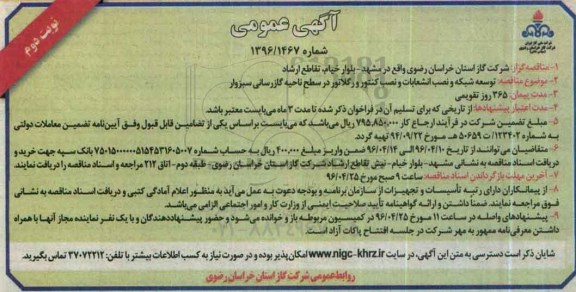 نوبت دوم
آگهی عمومی
شماره ۱۳۹۶/۱۴۶۷
شرکت ملی گاز ایران
شرکت گاز استان خراسان رضوی
۱- مناقصه‌گزار: شرکت گاز استان خراسان رضوی واقع در مشهد - بلوار خیام، تقاطع ارشاد
۲- موضوع مناقصه: توسعه شبکه و نصب انشعابات و نصب کنتور و رگلاتور در سطح ناحیه گازرسانی سبزوار
۳- مدت پیمان: ۳۶۵ روز تقویمی
۴- مدت اعتبار پیشنهادها: از تاریخی که برای تسلیم آن در فراخوان ذکر شده تا مدت ۳ ماه می‌بایست معتبر باشد.
۵- مبلغ تضمین شرکت در فرآیند ارجاع کار ۷۹۵,۸۵۰,۰۰۰ ریال می‌باشد که می‌بایست براساس یکی از تضامین قابل قبول وفق آیین‌نامه تضمین معاملات دولتی
به شماره ۱۲۳۴۰۲/ت ۵۰۶۵۹ هـ مورخ ۹۴/۰۹/۲۲ تهیه گردد.
۶- متقاضیان می توانند از تاریخ ۹۶/۰۴/۱۰ الی ۹۶/۰۴/۱۴ ضمن واریز مبلغ ۴۰۰,۰۰۰ ریال به حساب شماره بانک سپه جهت خرید و
دریافت اسناد مناقصه به نشانی مشهد - بلوار خیام - نبش تقاطع ارشاد شرکت گاز استان خراسان رضوی - طبقه دوم - اتاق ۲۱۲ مراجعه و اسناد مناقصه را دریافت نمایند.
۷- آخرین مهلت بازگرداندن اسناد مناقصه: ساعت ۹ صبح مورخ ۹۶/۰۴/۲۵
۸- از پیمانکاران دارای رتبه تأسیسات و تجهیزات از سازمان برنامه و بودجه دعوت به عمل می‌آید به منظور اعلام آمادگی کتبی و دریافت اسناد مناقصه به نشانی
فوق مراجعه نمایند. ضمنا داشتن و ارائه گواهینامه تأیید صلاحیت ایمنی از وزارت کار و امور اجتماعی الزامی می‌باشد.
۹- پیشنهادهای واصله در ساعت ۱۱ مورخ ۹۶/۰۴/۲۵ در کمیسیون مربوطه باز و خوانده می‌شود و حضور پیشنهاددهندگان و یا یک نفر نماینده مجاز آنها با همراه
داشتن معرفی‌نامه ممهور به مهر شرکت در جلسه افتتاح پاکات آزاد است.
شایان ذکر است دسترسی به متن این آگهی، در سایت www.nigc-khrz.ir امکان پذیر بوده و در صورت نیاز به کسب اطلاعات بیشتر با تلفن: ۳۷۰۷۲۲۱۲ تماس بگیرید.
روابط عمومی شرکت گاز استان خراسان رضوی